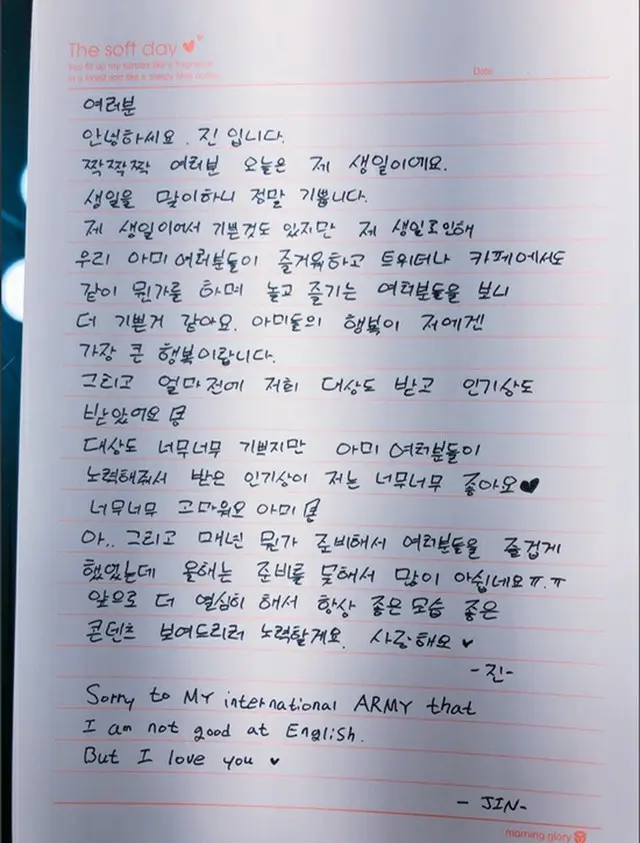 The soft day
Date
여러분
안녕하세요. 진 입니다.
짝짝짝 여러분 오늘은 제 생일이에요.
생일을 맞이하니 정말 기쁩니다.
제 생일이어서 기쁜것도 있지만 제 생일로인해
우리 아미여러분들이 즐거워하고 트위터나 카페에서도
같이 뭔가를 하며 놀고 즐기는 여러분들을 보니
더 기쁜거 같아요. 아미들의 행복이 저에겐
가장 큰 행복이랍니다.
그리고 얼마전에 저희 대상도 받고 인기상도
받았어요
대상도 너무너무 기쁘지만 아미 여러분들이
노력해줘서 받은 인기상이 저는 너무너무 좋아요♥
너무너무 고마워요 아미
아.. 그리고 매년 뭔가 준비해서 여러분들을 즐겁게
했었는데 올해는 준비를 못해서 많이 아쉽네요ㅠ.ㅠ
앞으로 더 열심히 해서 항상 좋은모습 좋은
콘텐츠 보여드리려 노력할게요. 사랑해요 ♥
-진-
Sorry to MY international ARMY that
I am not good at English.
But I love you ♥
- JIN-
morning glory